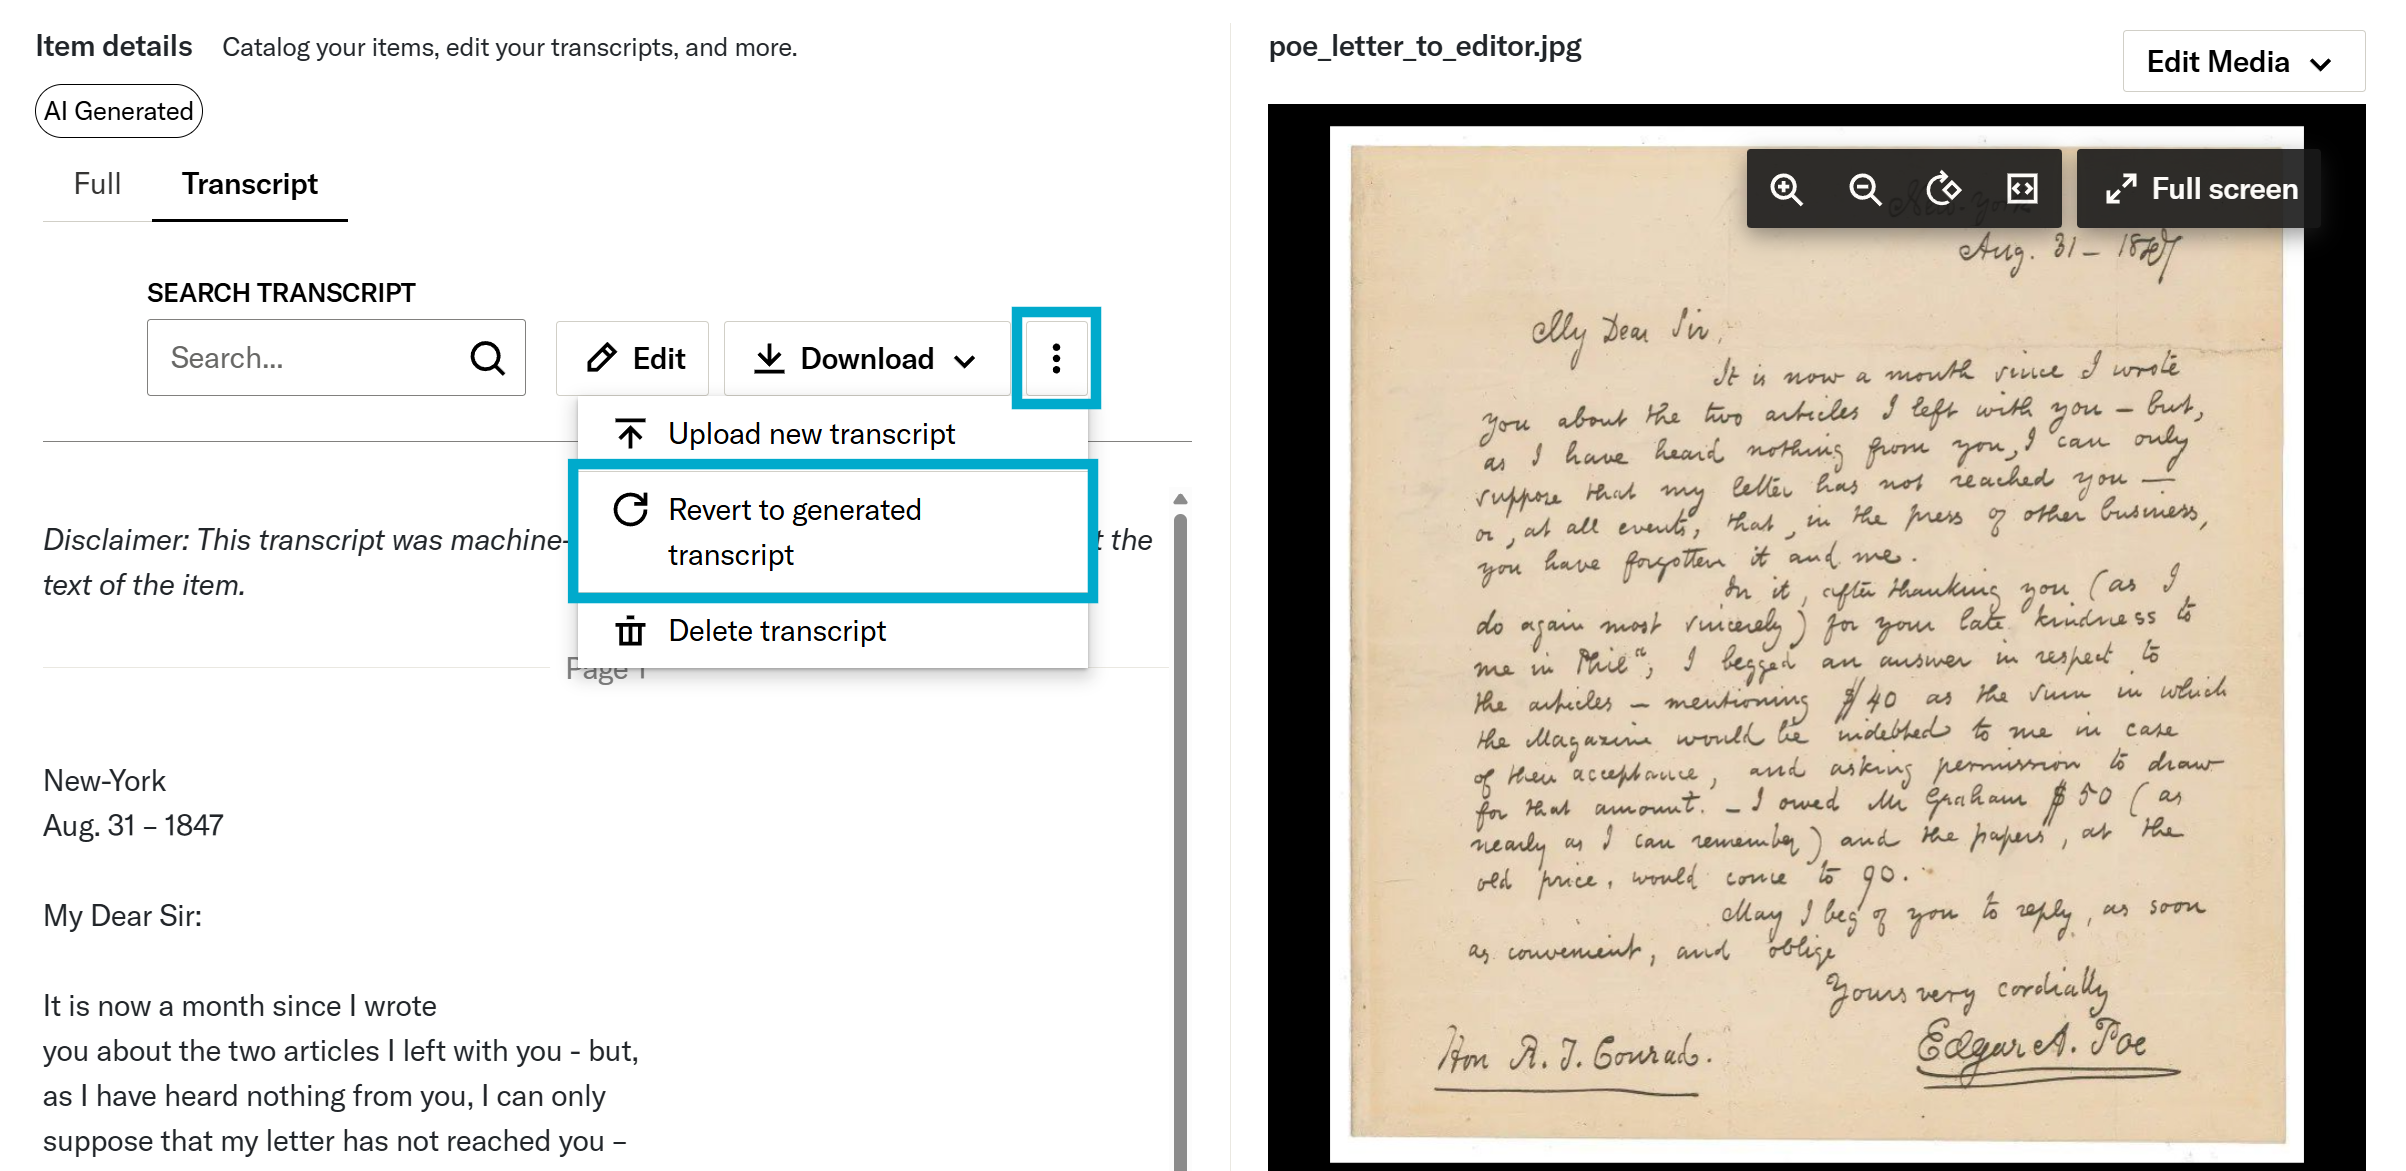 Item details Catalog your items, edit your transcripts, and more.
AI Generated
Full Transcript
SEARCH TRANSCRIPT
Search...
Edit
Download
Upload new transcript
Revert to generated
transcript
Delete transcript
Disclaimer: This transcript was machine-
t the
text of the item.
Page 1
New-York
Aug. 31 – 1847
My Dear Sir:
It is now a month since I wrote
you about the two articles I left with you - but,
as I have heard nothing from you, I can only
suppose that my letter has not reached you –
poe_letter_to_editor.jpg
Edit Media
Full screen
New-York
Aug. 31 – 1847
My Dear Sir,
It is now a month since I wrote
you about the two articles I left with you – but,
as I have heard nothing from you, I can only
suppose that my letter has not reached you —
or, at all events, that, in the press of other business,
you have forgotten it and me.
In it, after thanking you (as I
do again most sincerely) for your late kindness to
me in Phila, I begged an answer in respect to
the articles – mentioning $40 as the sum in which
the Magazine would be indebted to me in case
of their acceptance, and asking permission to draw
for that amount. – I owed Mr Graham $50 (as
nearly as I can remember) and the papers, at the
old price, would come to 90.
May I beg of you to reply, as soon
as convenient, and oblige
Yours very cordially
Edgar A. Poe
Hon R. T. Conrad.